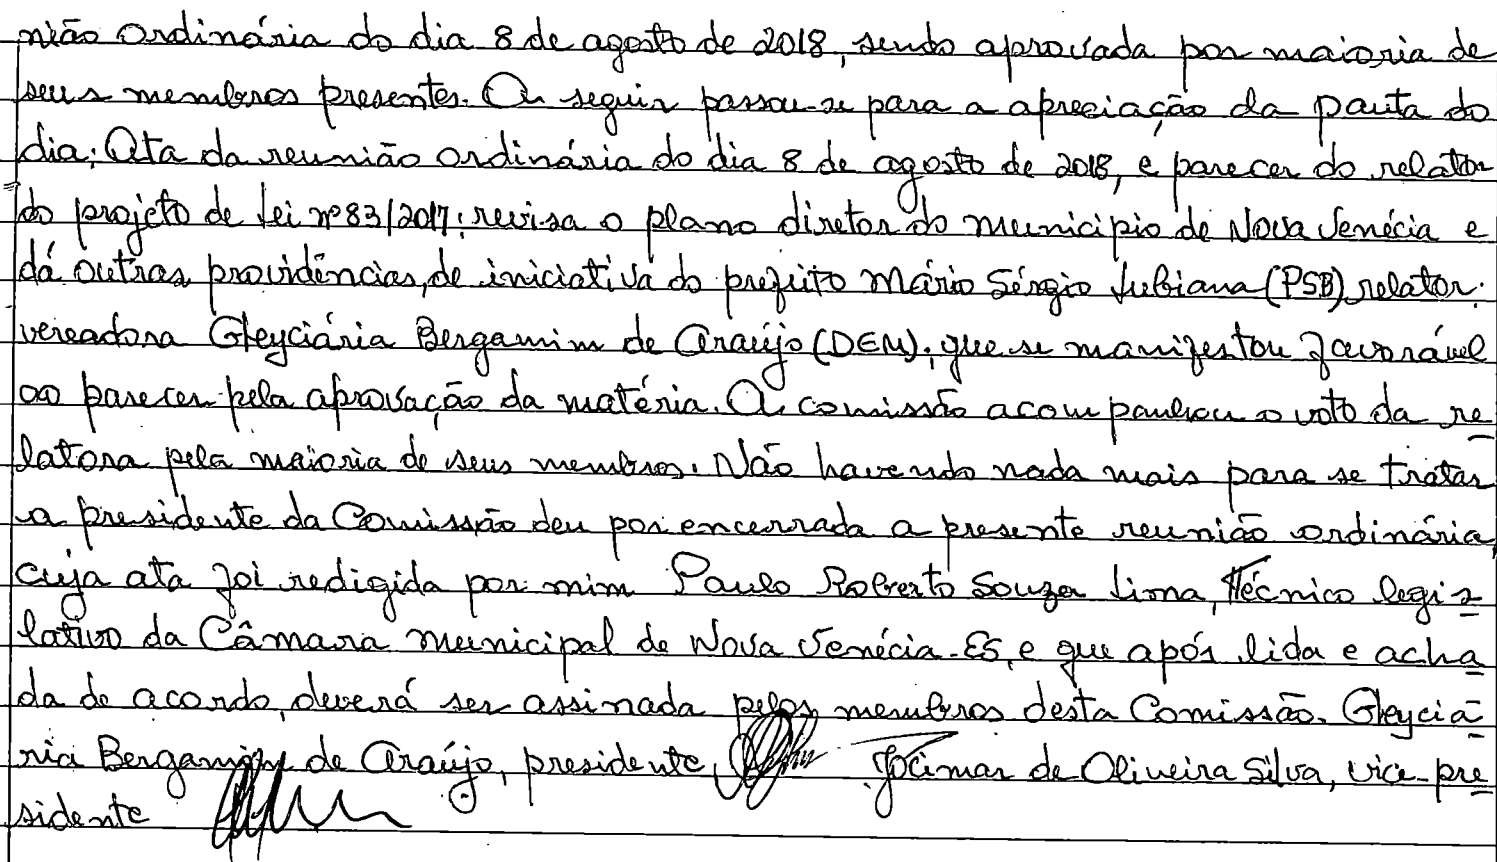 nião ordinária do dia 8 de agosto de 2018, sendo aprovada por maioria de
seus membros presentes. A seguir passou-se para a apreciação da pauta do
dia: Ata da reunião ordinária do dia 8 de agosto de 2018, e parecer do relator
do projeto de lei nº 83/2017: revisa o plano diretor do municipio de Nova Venécia e
dá outras providências, de iniciativa do prefeito Mário Sérgio Lubiana (PSB), relator:
vereadora Gleyciária Bergamim de Araújo (DEM), que se manifestou favorável
ao parecer pela aprovação da matéria. A comissão acompanhou o voto da re
latora pela maioria de seus membros. Não havendo nada mais para se tratar
a presidente da Comissão deu por encerrada a presente reunião ordinária,
cuja ata foi redigida por mim Paulo Roberto Souza Lima, Técnico legis
lativo da Câmara municipal de Nova Venécia-ES, e que após lida e acha
da de acordo, deverá ser assinada pelos membros desta Comissão. Gleyciá
ria Bergamim de Araújo, presidente, Jocimar de Oliveira Silva, vice-pre
sidente